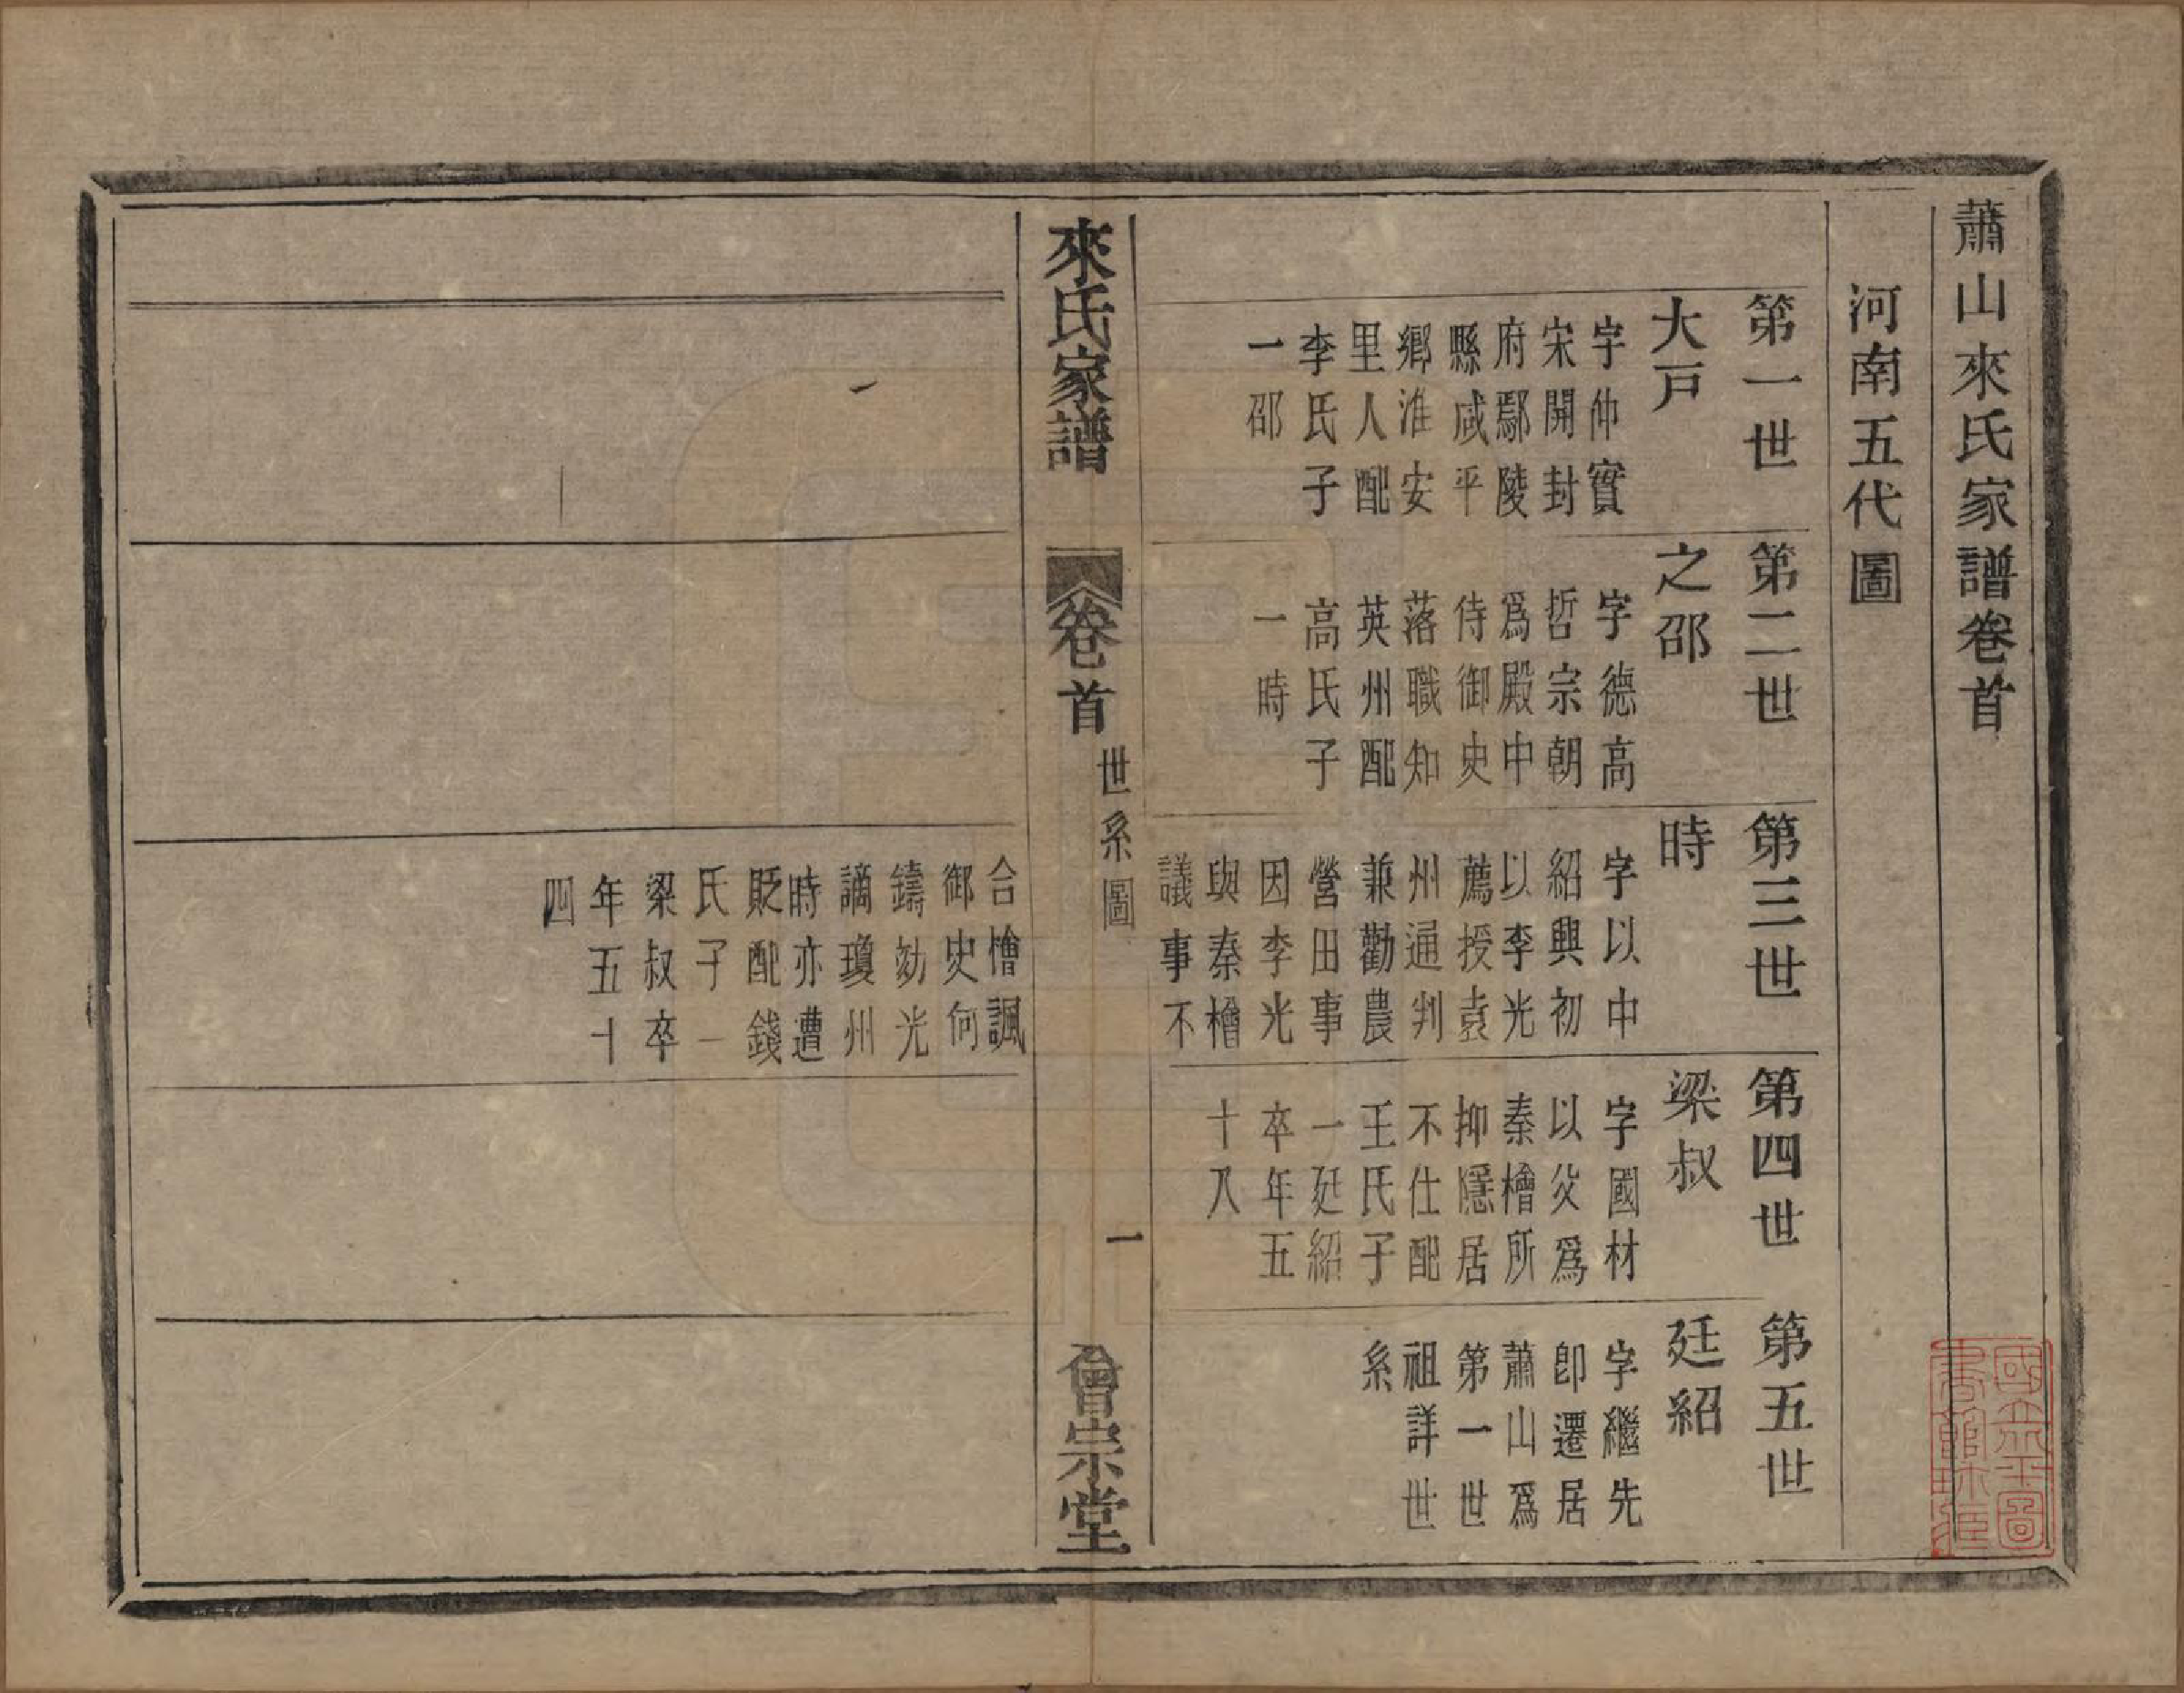 蕭山來氏家譜卷首
河南五代圖
第一世
大戸
字仲實
宋開封
府鄢陵
縣咸平
鄉淮安
里人配
李氏子
一邵
第二世
之邵
字德高
哲宗朝
爲殿中
侍御史
落職知
英州配
高氏子
一時
第三世
時
字以中
紹興初
以李光
薦授袁
州通判
兼勸農
營田事
因李光
與秦檜
議事不
合檜諷
御史何
鑄劾光
謫瓊州
時亦遭
貶配錢
氏子一
梁叔卒
年五十
四
第四世
梁叔
字國材
以父爲
秦檜所
抑隱居
不仕配
王氏子
一廷紹
卒年五
十八
第五世
廷紹
字繼先
卽遷居
蕭山爲
第一世
祖詳世
系
來氏家譜
卷首
世系圖
一
會宗堂
國立北平圖
書館收藏